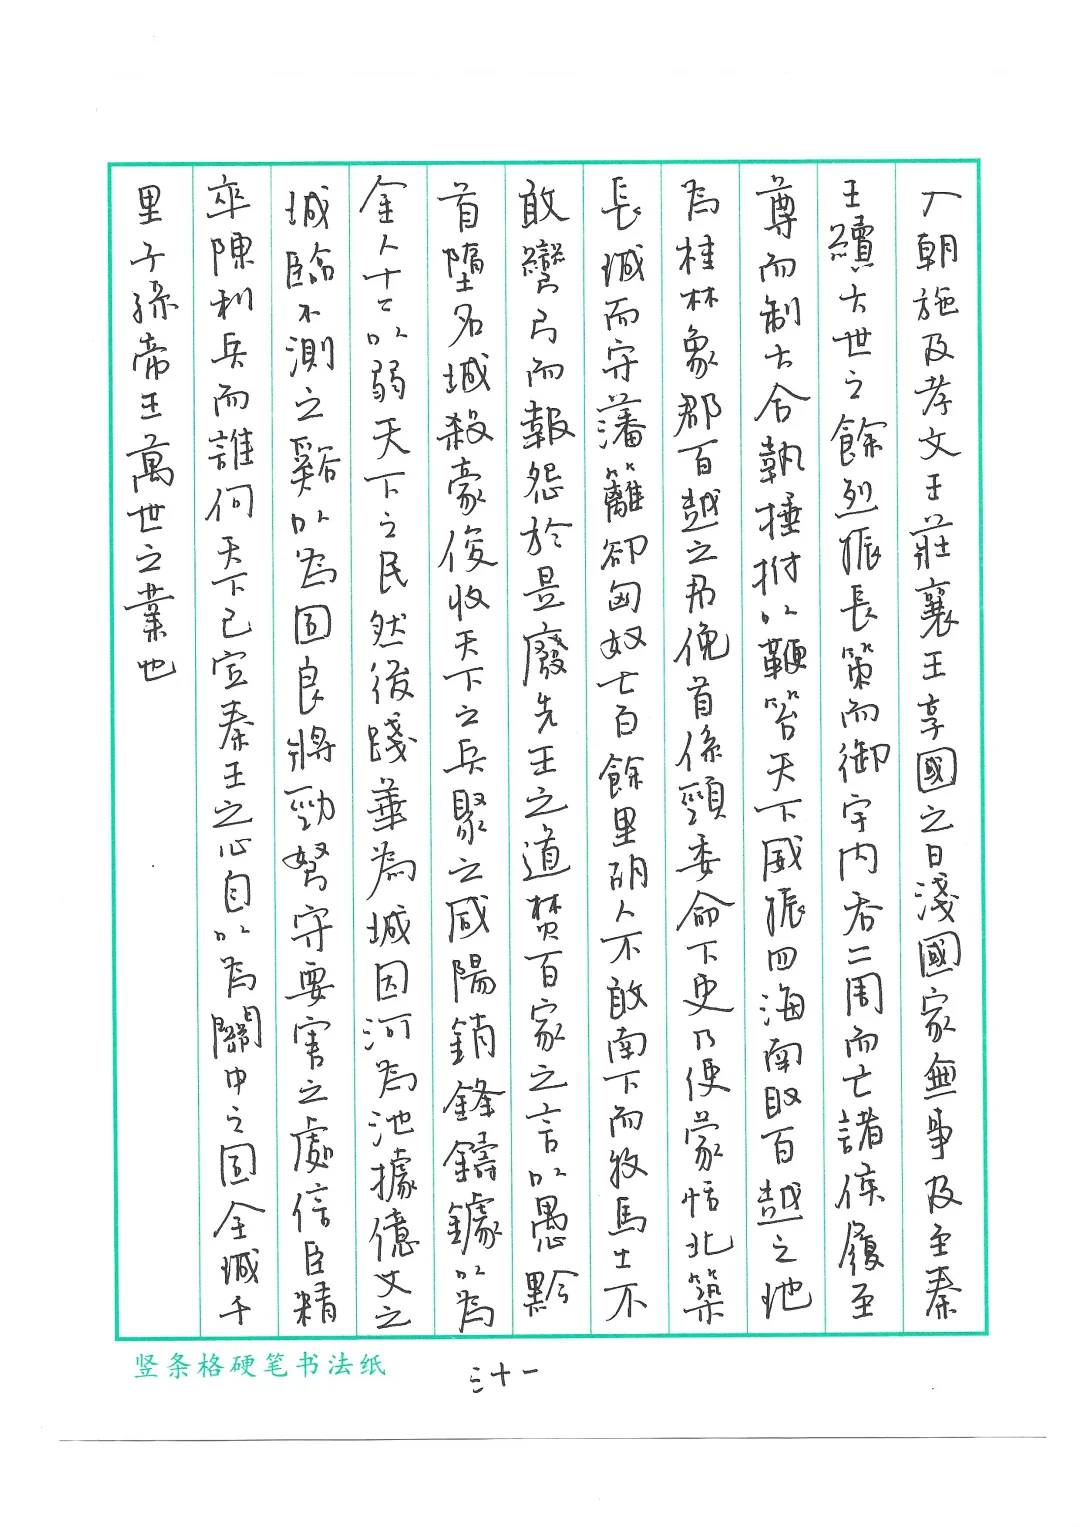 入朝施及孝文王莊襄王享國之日淺國家無事及至秦
王續六世之餘烈振長策而御宇内吞二周而亡諸侯履至
尊而制六合執捶拊以鞭笞天下威振四海南取百越之地
為桂林象郡百越之君俛首係頸委命下吏乃使蒙恬北築
長城而守藩籬卻匈奴七百餘里胡人不敢南下而牧馬士不
敢彎弓而報怨於是廢先王之道焚百家之言以愚黔
首墮名城殺豪俊收天下之兵聚之咸陽銷鋒鑄鐻以為
金人十二以弱天下之民然後踐華為城因河為池據億丈之
城臨不測之谿以為固良將勁弩守要害之處信臣精
卒陳利兵而誰何天下已定秦王之心自以為關中之固金城千
里子孫帝王萬世之業也
竖条格硬笔书法纸
三十一